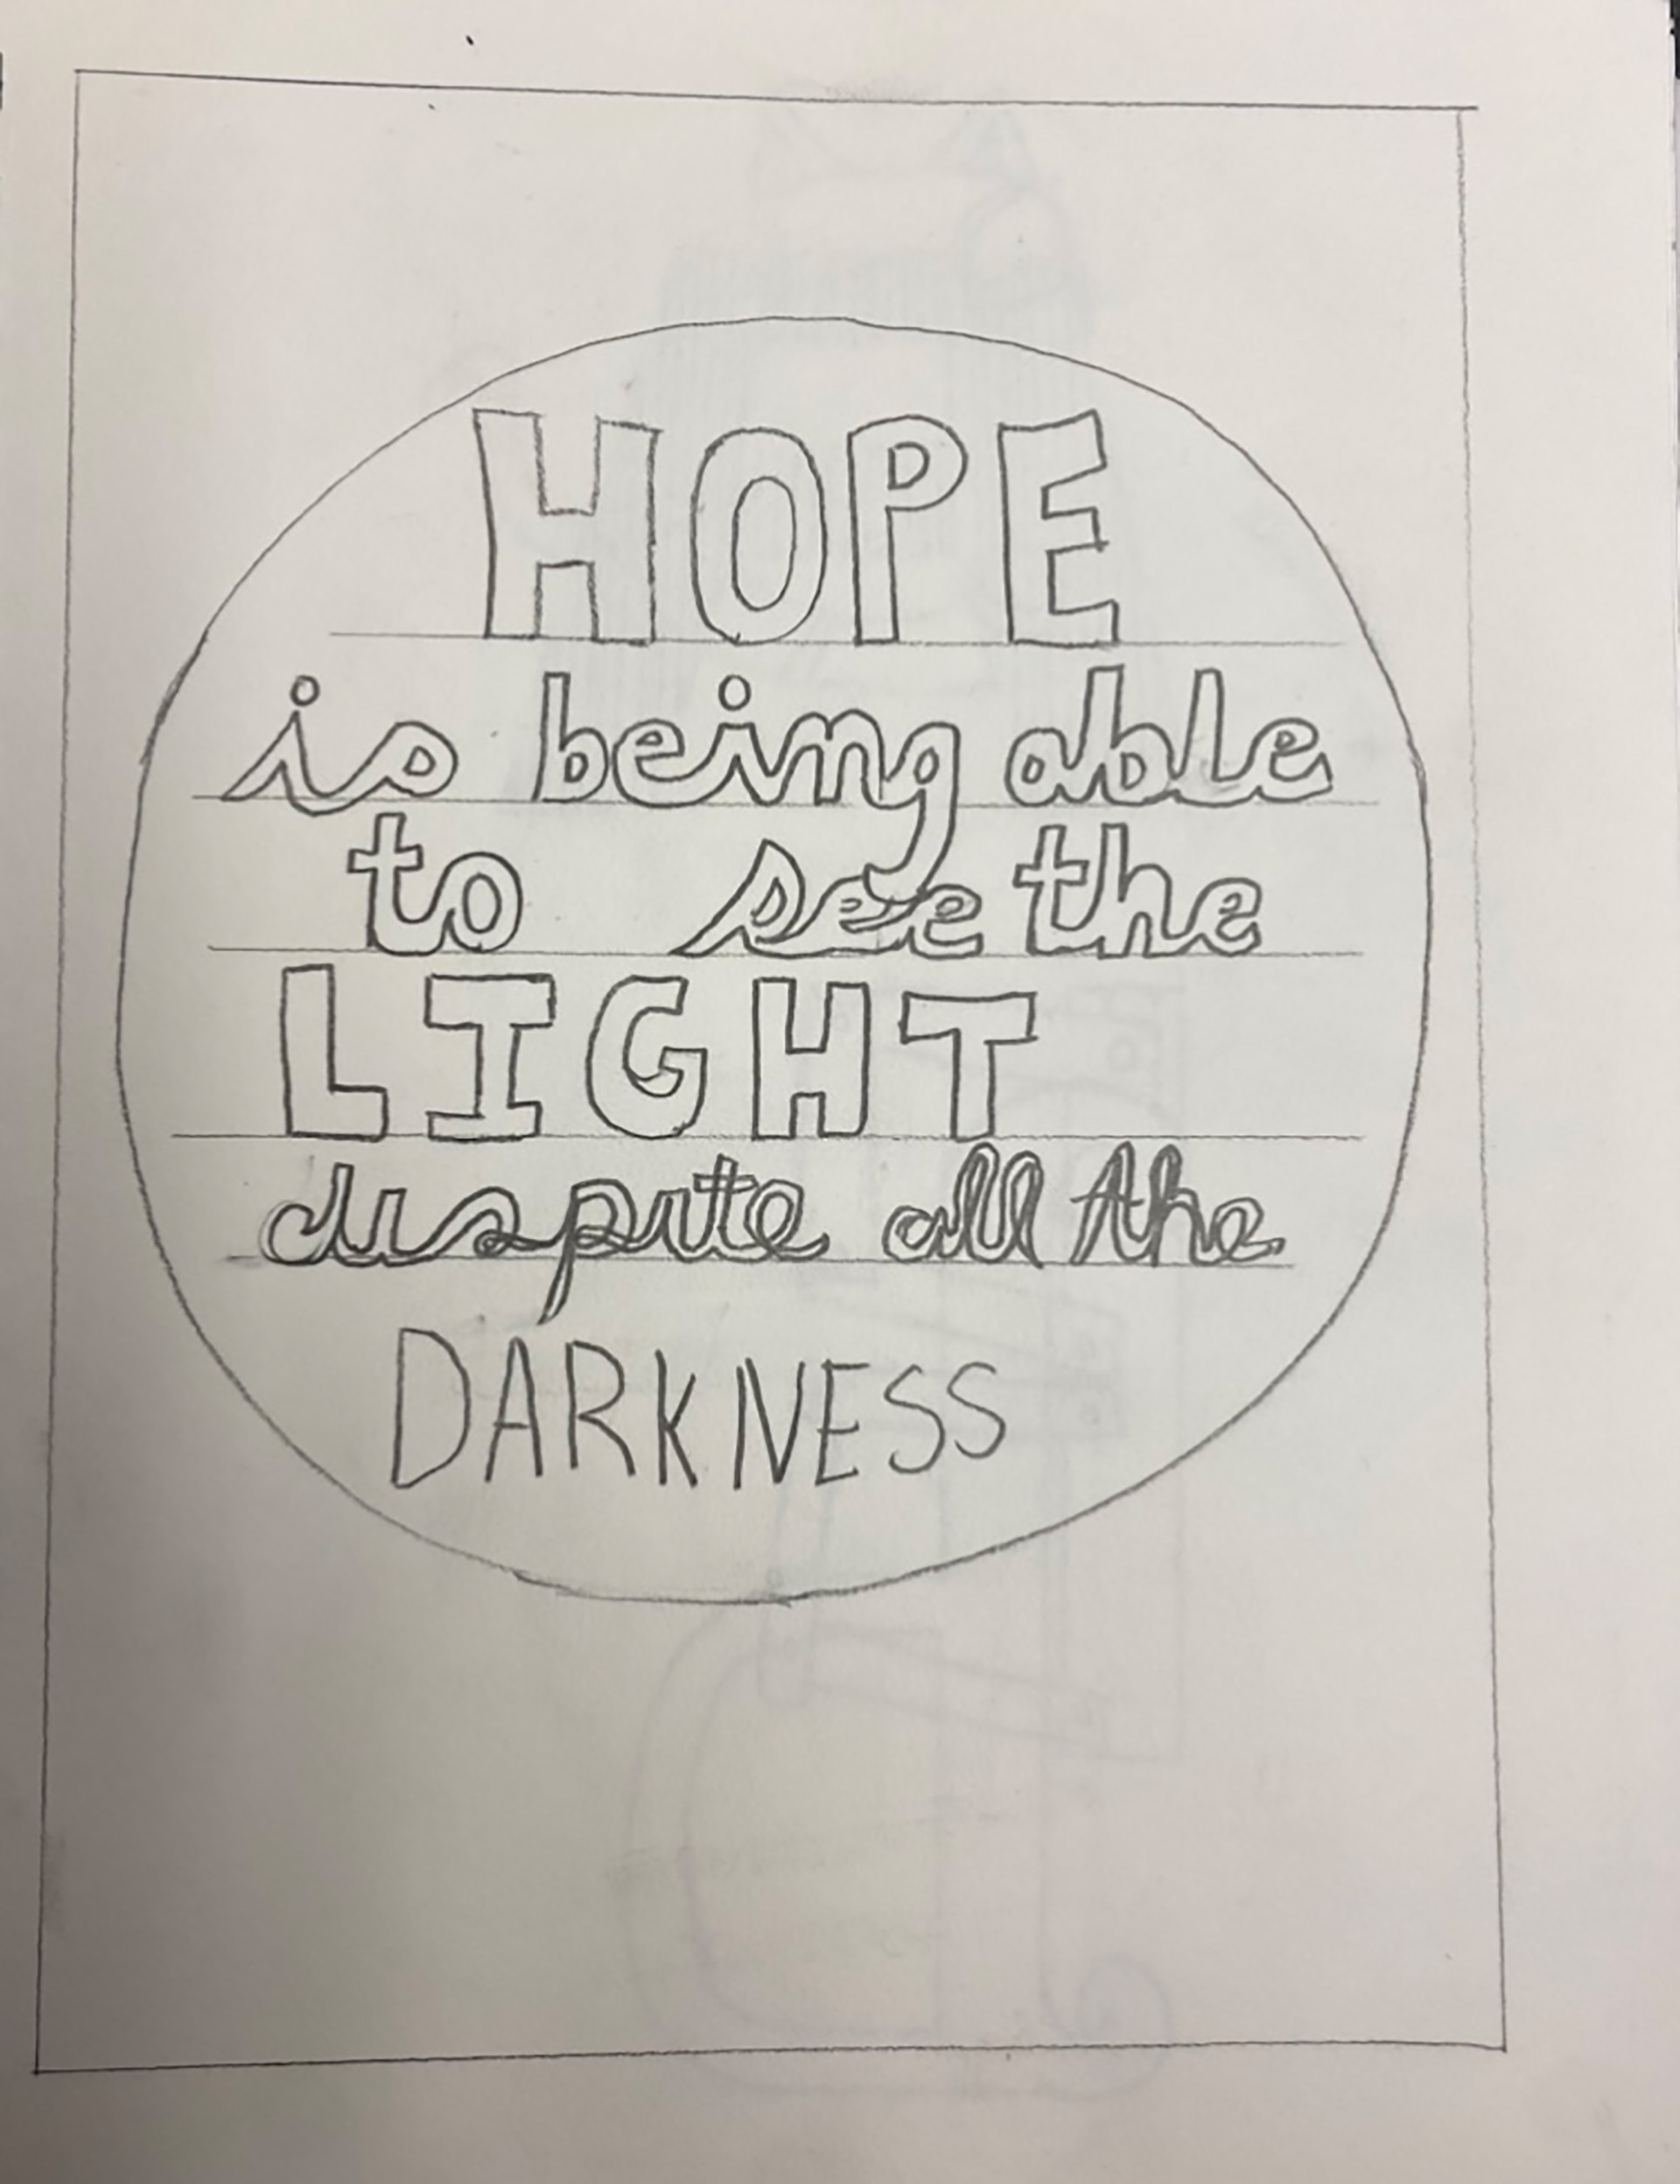 HOPE
is being able
to see the
LIGHT
dispite all the
DARKNESS